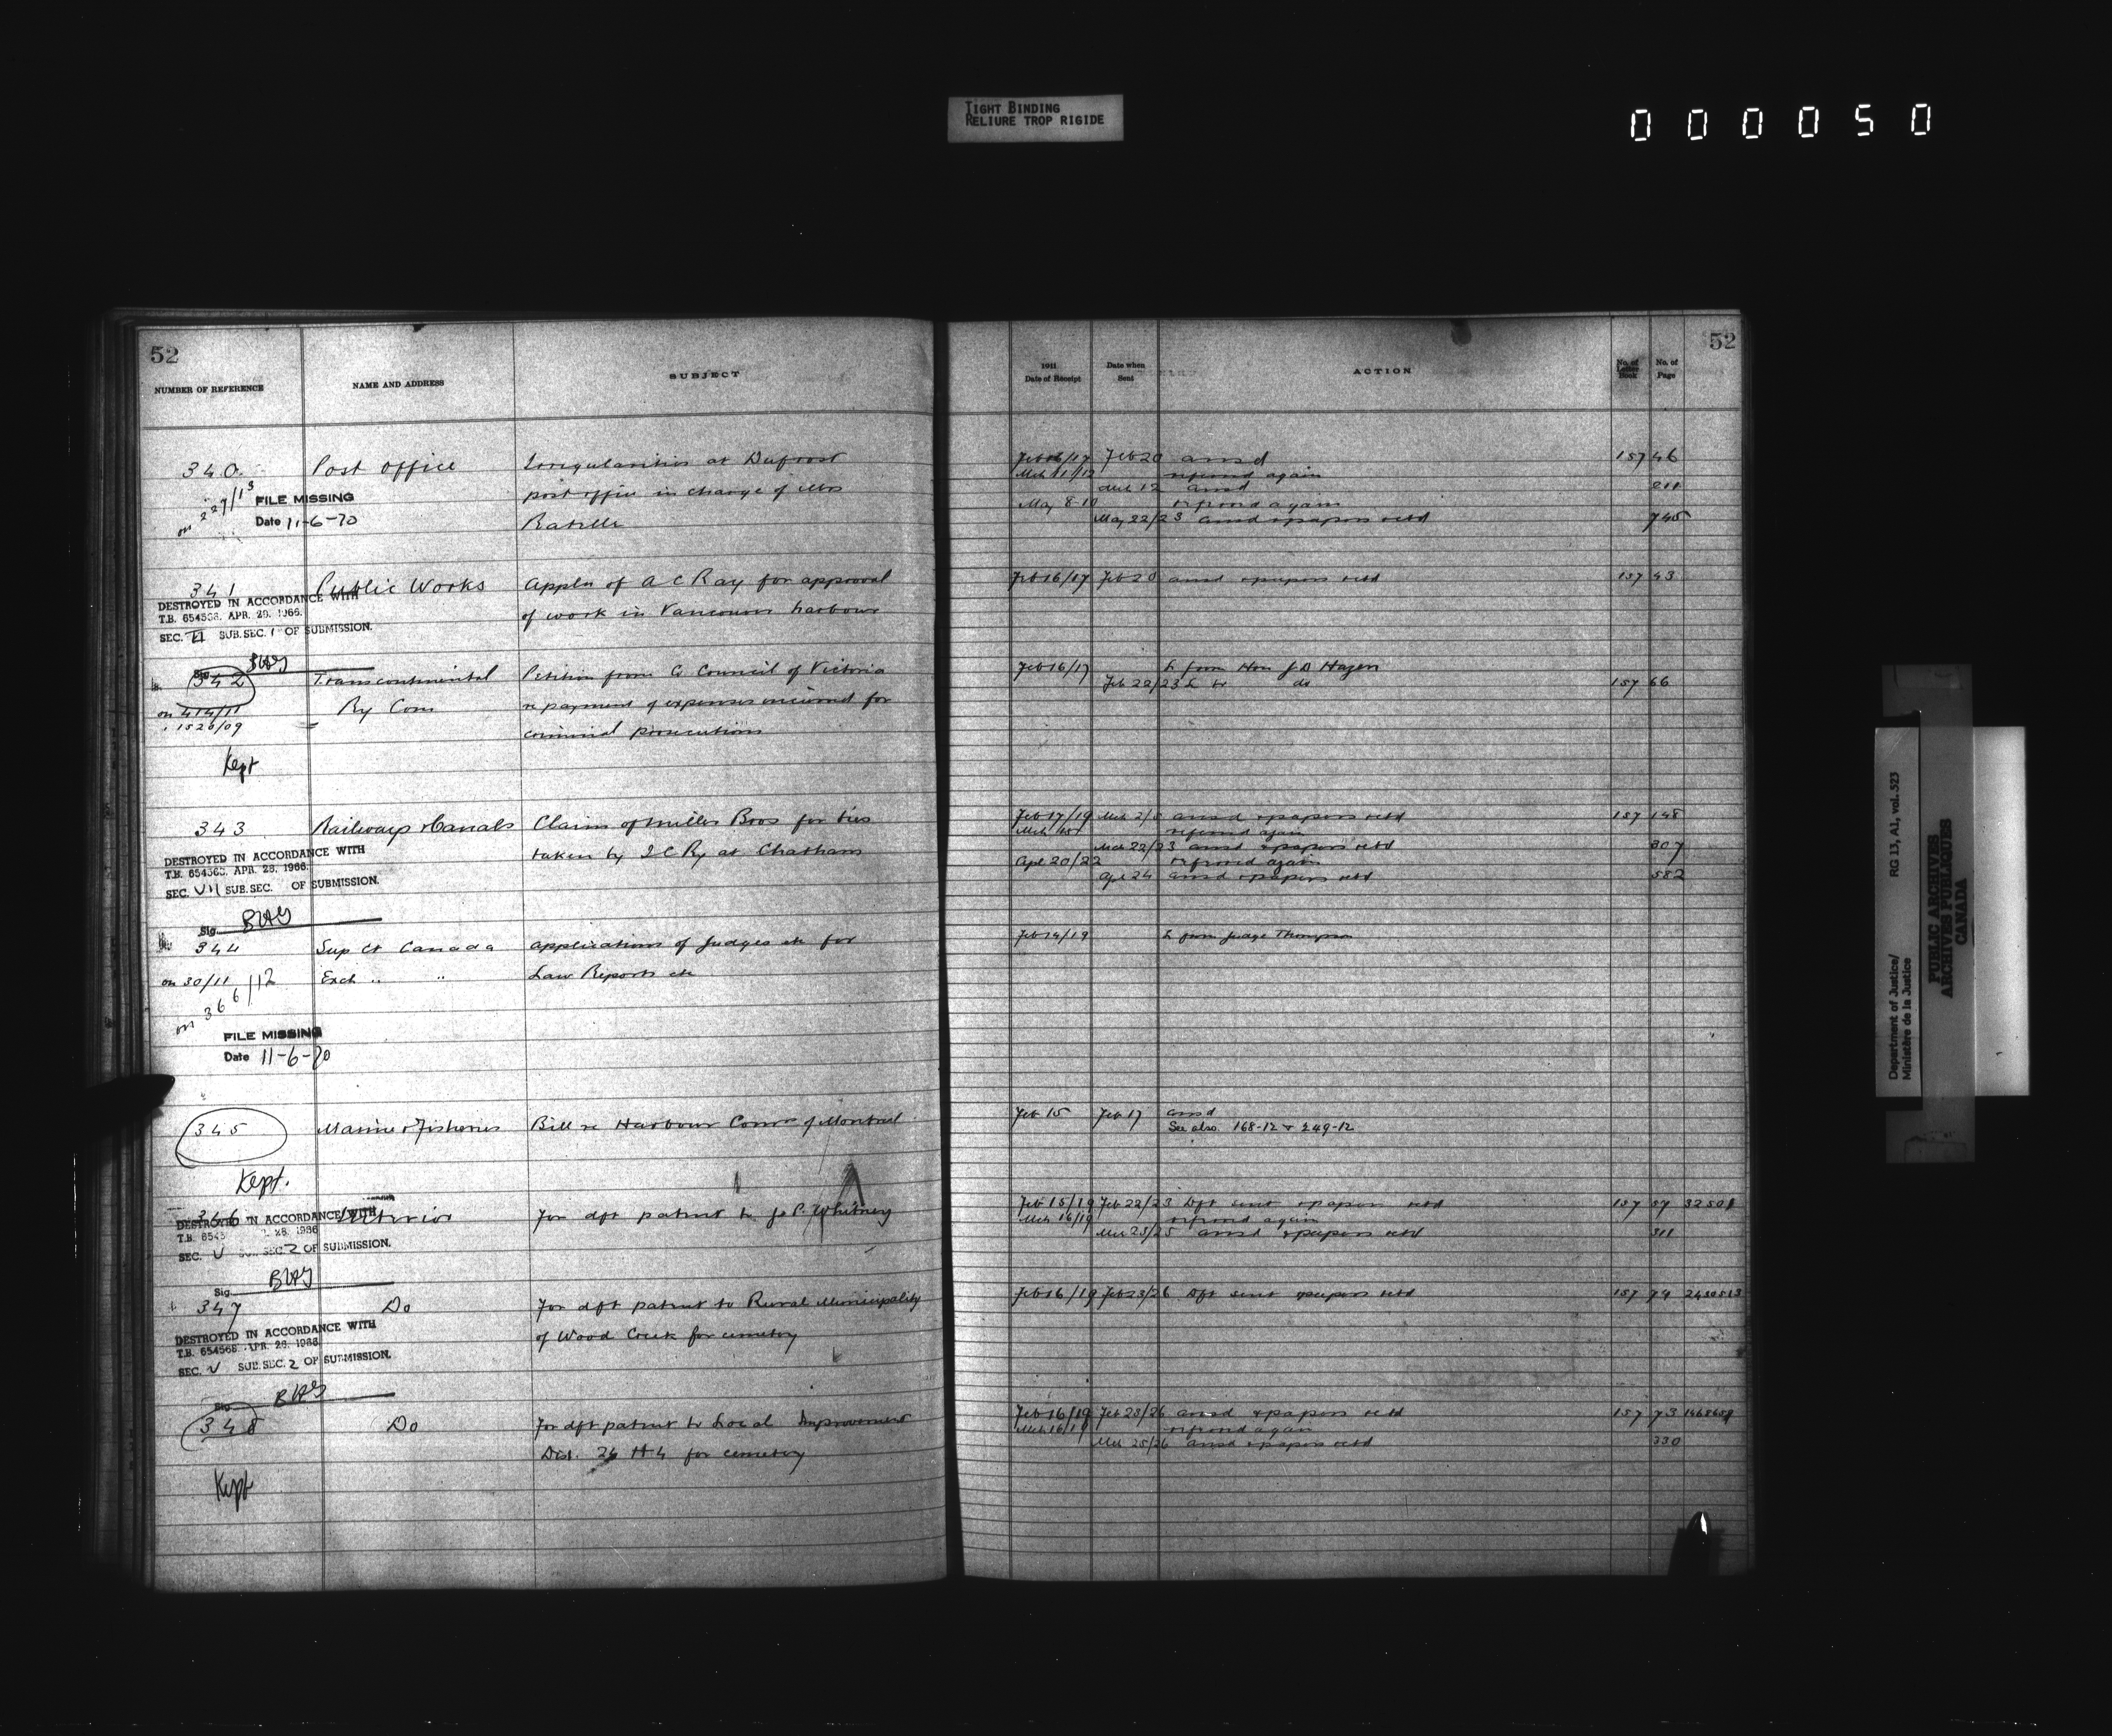 TIGHT BINDING
RELIURE TROP RIGIDE
000050
52
NUMBER OF REFERENCE NAME AND ADDRESS SUBJECT
340 Post Office Irregularities at Dufrost
post office in charge of Mrs
on 227/13
FILE MISSING
Date 11-6-70
341 Public Works Appln of A C Ray for approval
of work in Vancouver harbour
DESTROYED IN ACCORDANCE WITH
T.B. 654568. APR. 28. 1966.
SEC. VI SUB. SEC. 1 OF SUBMISSION.
Sig. BWG
342 Transcontinental Petition from Co Council of Victoria
on 414/11 Ry Com re payment of expenses incurred for
" 1526/09 criminal prosecutions
Kept
343 Railways & Canals Claim of Miller Bros for ties
taken by I C Ry at Chatham
DESTROYED IN ACCORDANCE WITH
T.B. 654568. APR. 28. 1966.
SEC. VII SUB. SEC. OF SUBMISSION.
Sig. BWG
344 Sup Ct Canada Applications of Judges etc for
on 30/11 Exch " " Law Reports etc
on 366/12
FILE MISSING
Date 11-6-70
345 Marine & Fisheries Bill re Harbour Comrs of Montreal
Kept.
346 Interior For dft patent to J P Whitney
DESTROYED IN ACCORDANCE WITH
T.B. 6545 28. 1966
SEC. V SUB. SEC. 2 OF SUBMISSION.
Sig. BWG
347 Do For dft patent to Rural Municipality
of Wood Creek for cemetery
DESTROYED IN ACCORDANCE WITH
T.B. 654568 APR. 28. 1966
SEC. V SUB. SEC. 2 OF SUBMISSION.
Sig. BWG
348 Do For dft patent to Local Improvement
Dist. 26 H 4 for cemetery
Kept
52
1911
Date of Receipt Date when Sent ACTION No. of Letter Book No. of Page
Feb 16/17 Feb 20 ansd 157 46
Mch 11/12 referred again
Mch 12 ansd 211
May 8-10 referred again
May 22/23 ansd & papers retd 745
Feb 16/17 Feb 20 ansd & papers retd 157 43
Feb 16/17 L from Hon J D Hazen
Feb 22/23 L to do 157 66
Feb 17/19 Mch 2/5 ansd & papers retd 157 148
Mch referred again
Mch 22/23 ansd & papers retd 307
Apl 20/22 referred again
Apl 24 ansd & papers retd 582
Feb 14/19 L from Judge Thompson
Feb 15 Feb 17 ansd
See also 168-12 & 249-12
Feb 15/19 Feb 22/23 Dft sent & papers retd 157 57 32501
Mch 16/19 referred again
Mch 23/25 ansd & papers retd 311
Feb 16/19 Feb 23/26 Dft sent & papers retd 157 74 2430513
Feb 16/19 Feb 23/26 ansd & papers retd 157 73
Mch 16/19 referred again
Mch 25/26 ansd & papers retd 330
Department of Justice/
Ministère de la Justice
RG 13, A1, vol. 523
PUBLIC ARCHIVES
ARCHIVES PUBLIQUES
CANADA